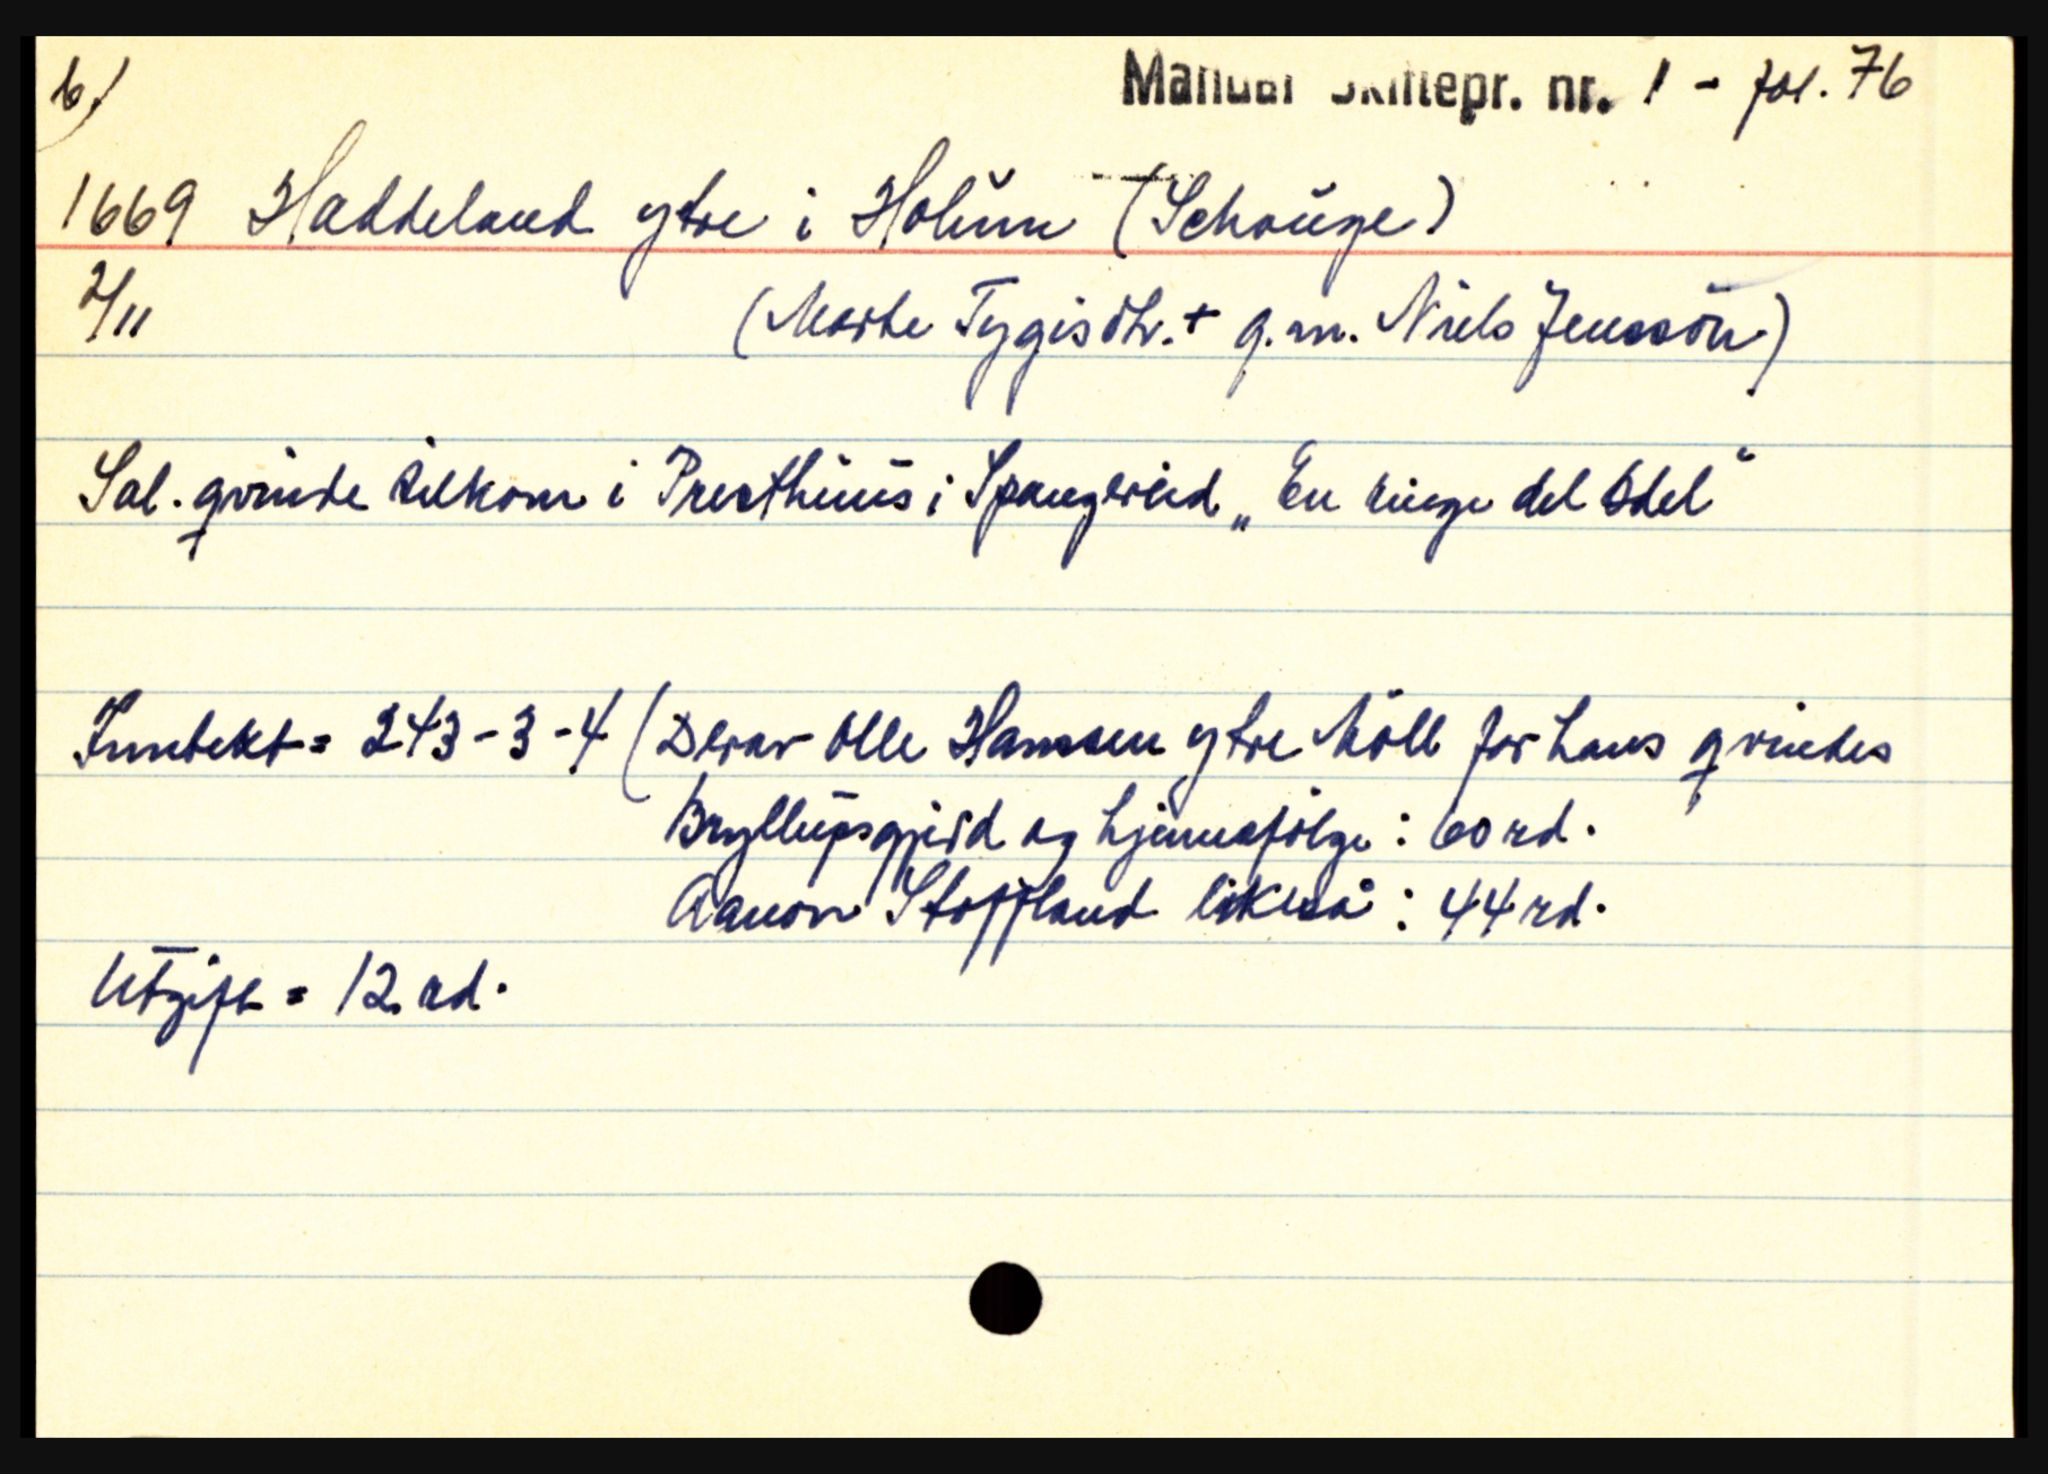 b)
Mandal Skiftepr. nr. 1 - fol. 76
1669 Haddeland ytre i Holum (Schouge)
2/11
(Marte Tygisdtr. + g.m. Niels Jenssön)
Sal. qvinde tilkom i Presthuus i Spangereid „En ringe del Odel"
Inntekt = 243-3-4 (Derav Olle Hansen ytre Möll for hans qvindes
Bryllupsgjerd og hjemmefölge: 60 rd.
Aanon Stoffland likeså: 44 rd.
Utgift = 12 rd.